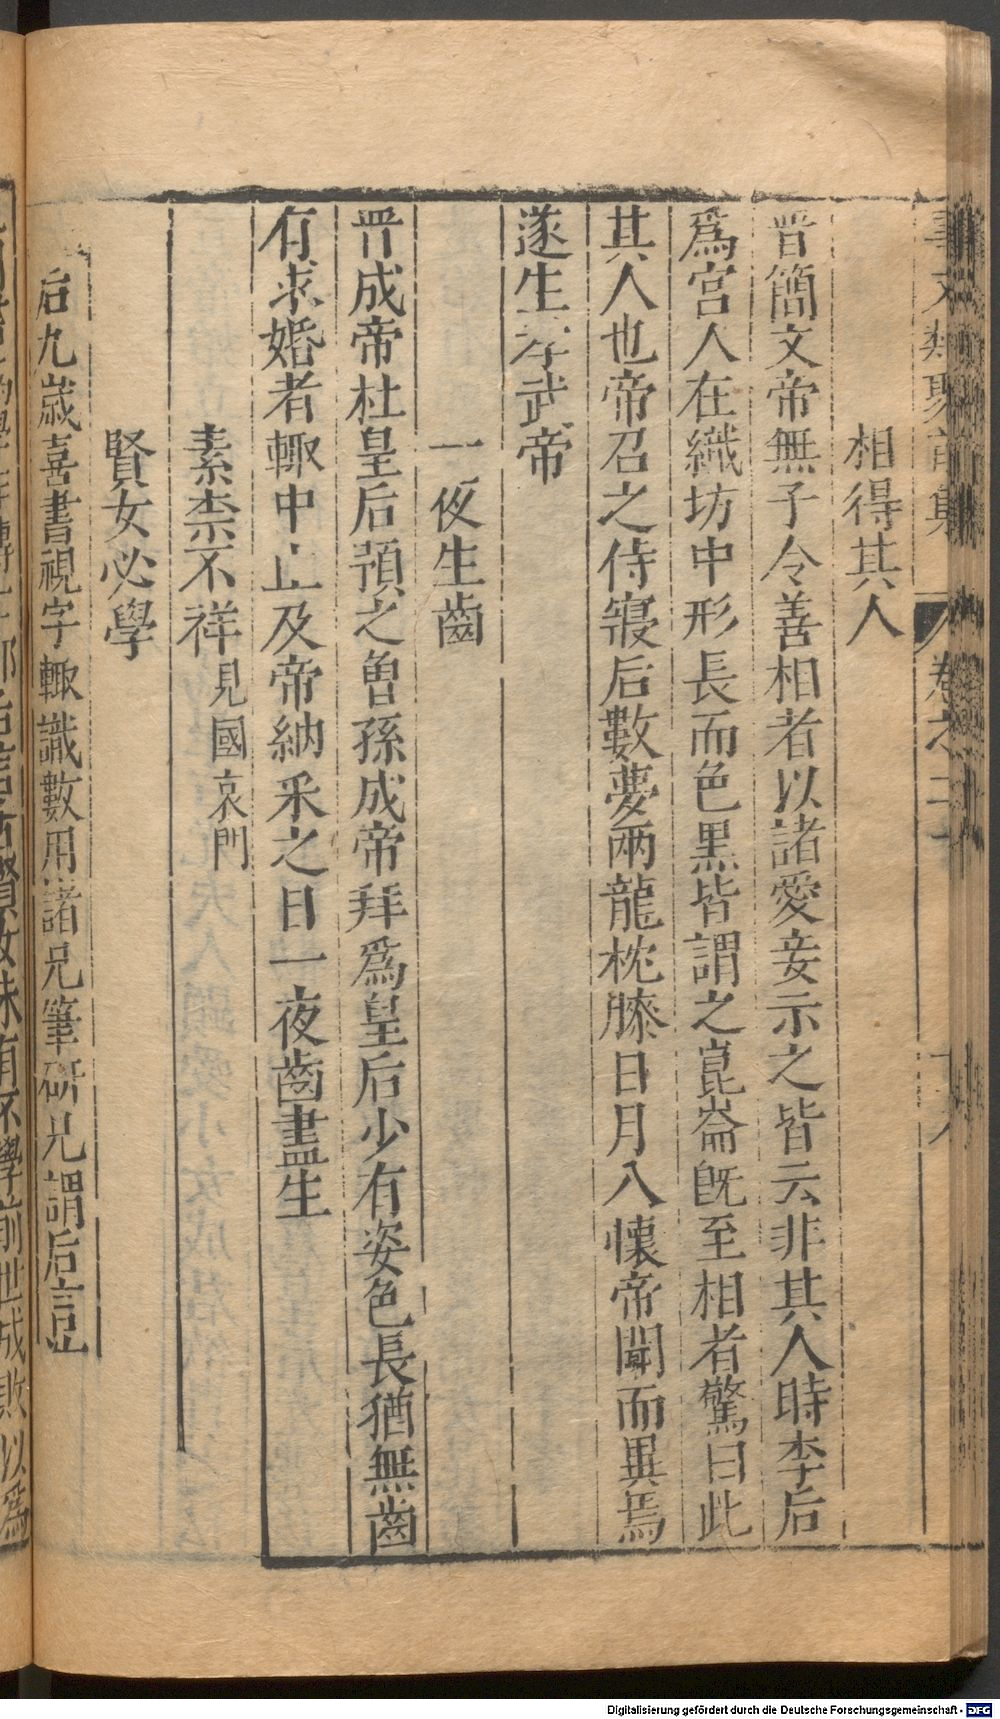 事文類聚前集 卷之二十
相得其人
晋簡文帝無子令善相者以諸愛妾示之皆云非其人時李后
爲宮人在織坊中形長而色黑皆謂之崑崙旣至相者驚曰此
其人也帝召之侍寢后數夢兩龍枕膝日月入懷帝聞而異焉
遂生孝武帝
一夜生齒
晋成帝杜皇后預之曾孫成帝拜爲皇后少有姿色長猶無齒
有求婚者輙中止及帝納采之日一夜齒盡生
素柰不祥見國哀門
賢女必學
后九歲喜書視字輙識數用諸兄筆硏兄謂后言
后言古賢女未有不學前世成敗以爲
Digitalisierung gefördert durch die Deutsche Forschungsgemeinschaft - DFG